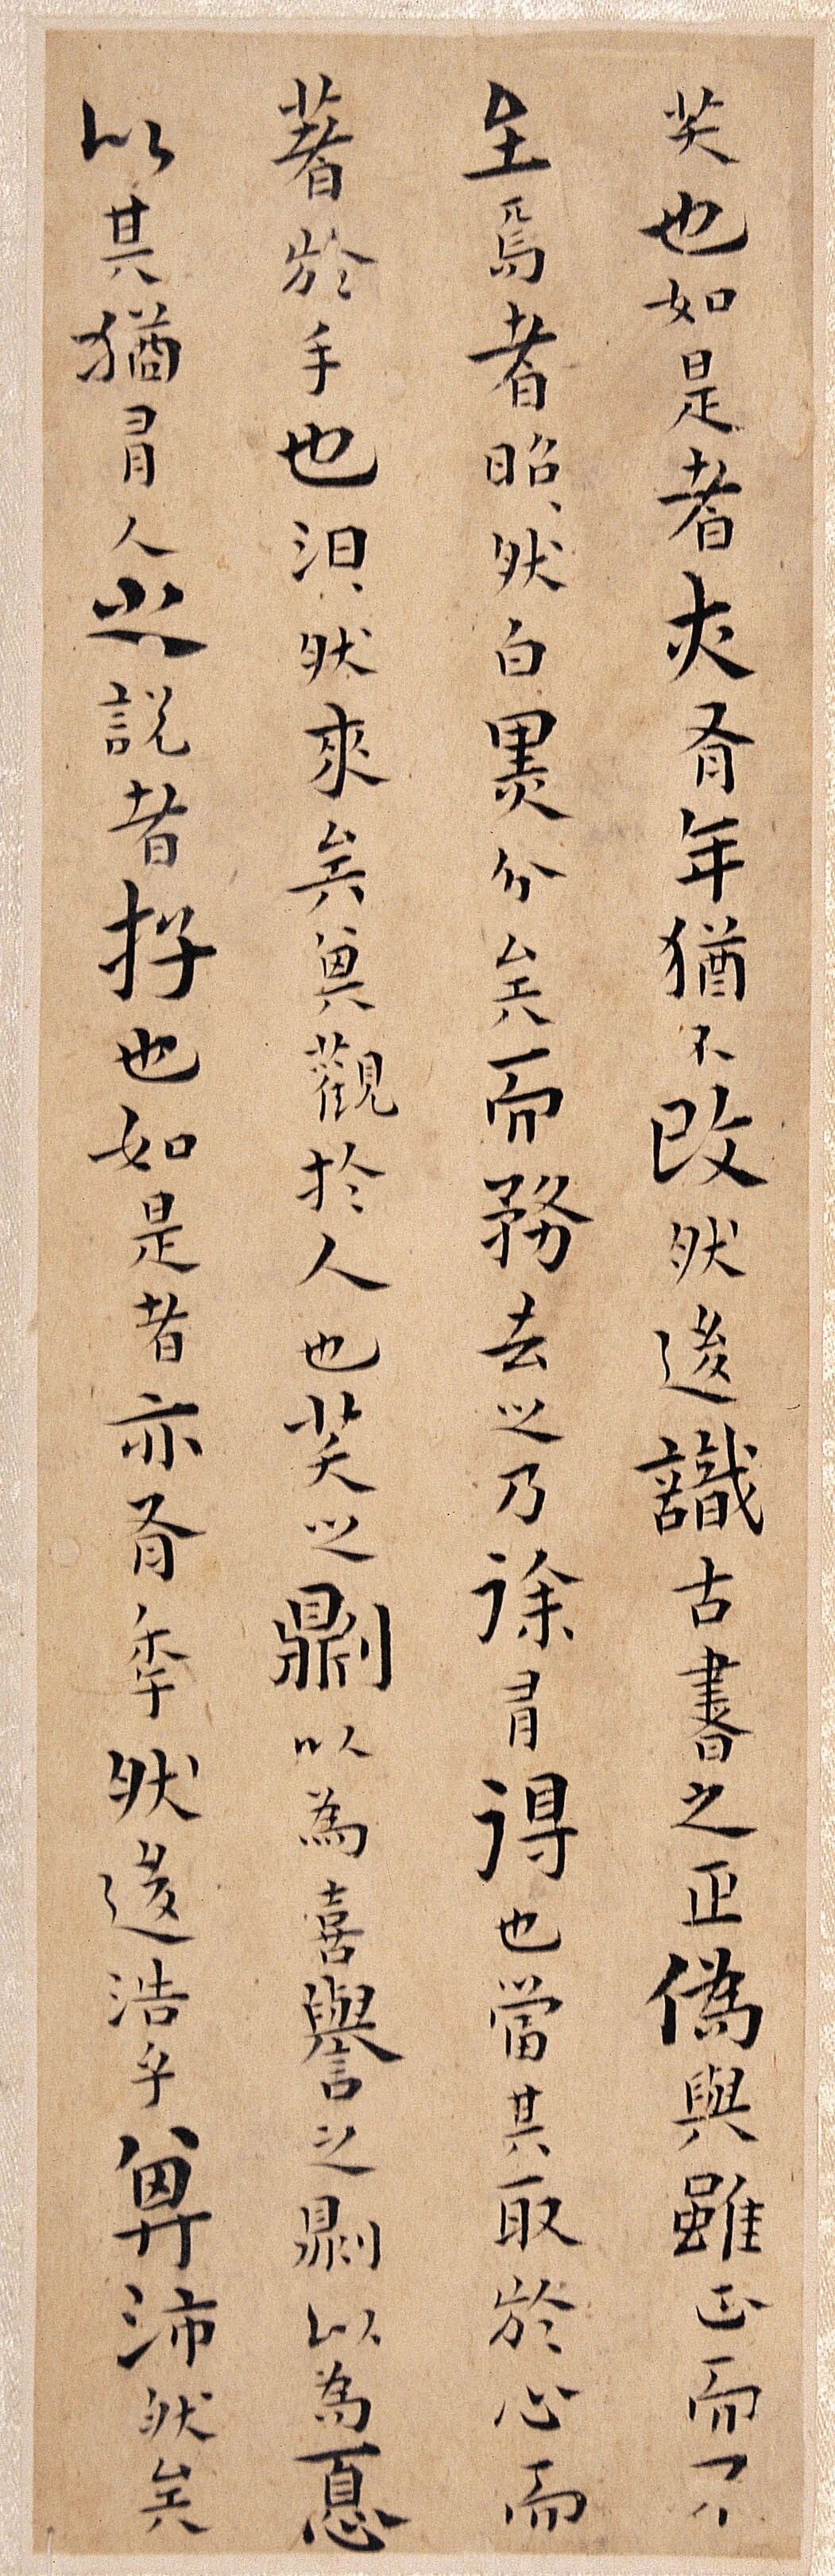 笑也如是者亦有年猶不改然後識古書之正偽與雖正而不
至焉者昭、然白黑分矣而務去之乃徐有得也當其取於心而
著於手也汩、然來矣其觀於人也笑之則以為喜譽之則以為憂
以其猶有人之說者存也如是者亦有年然後浩乎其沛然矣